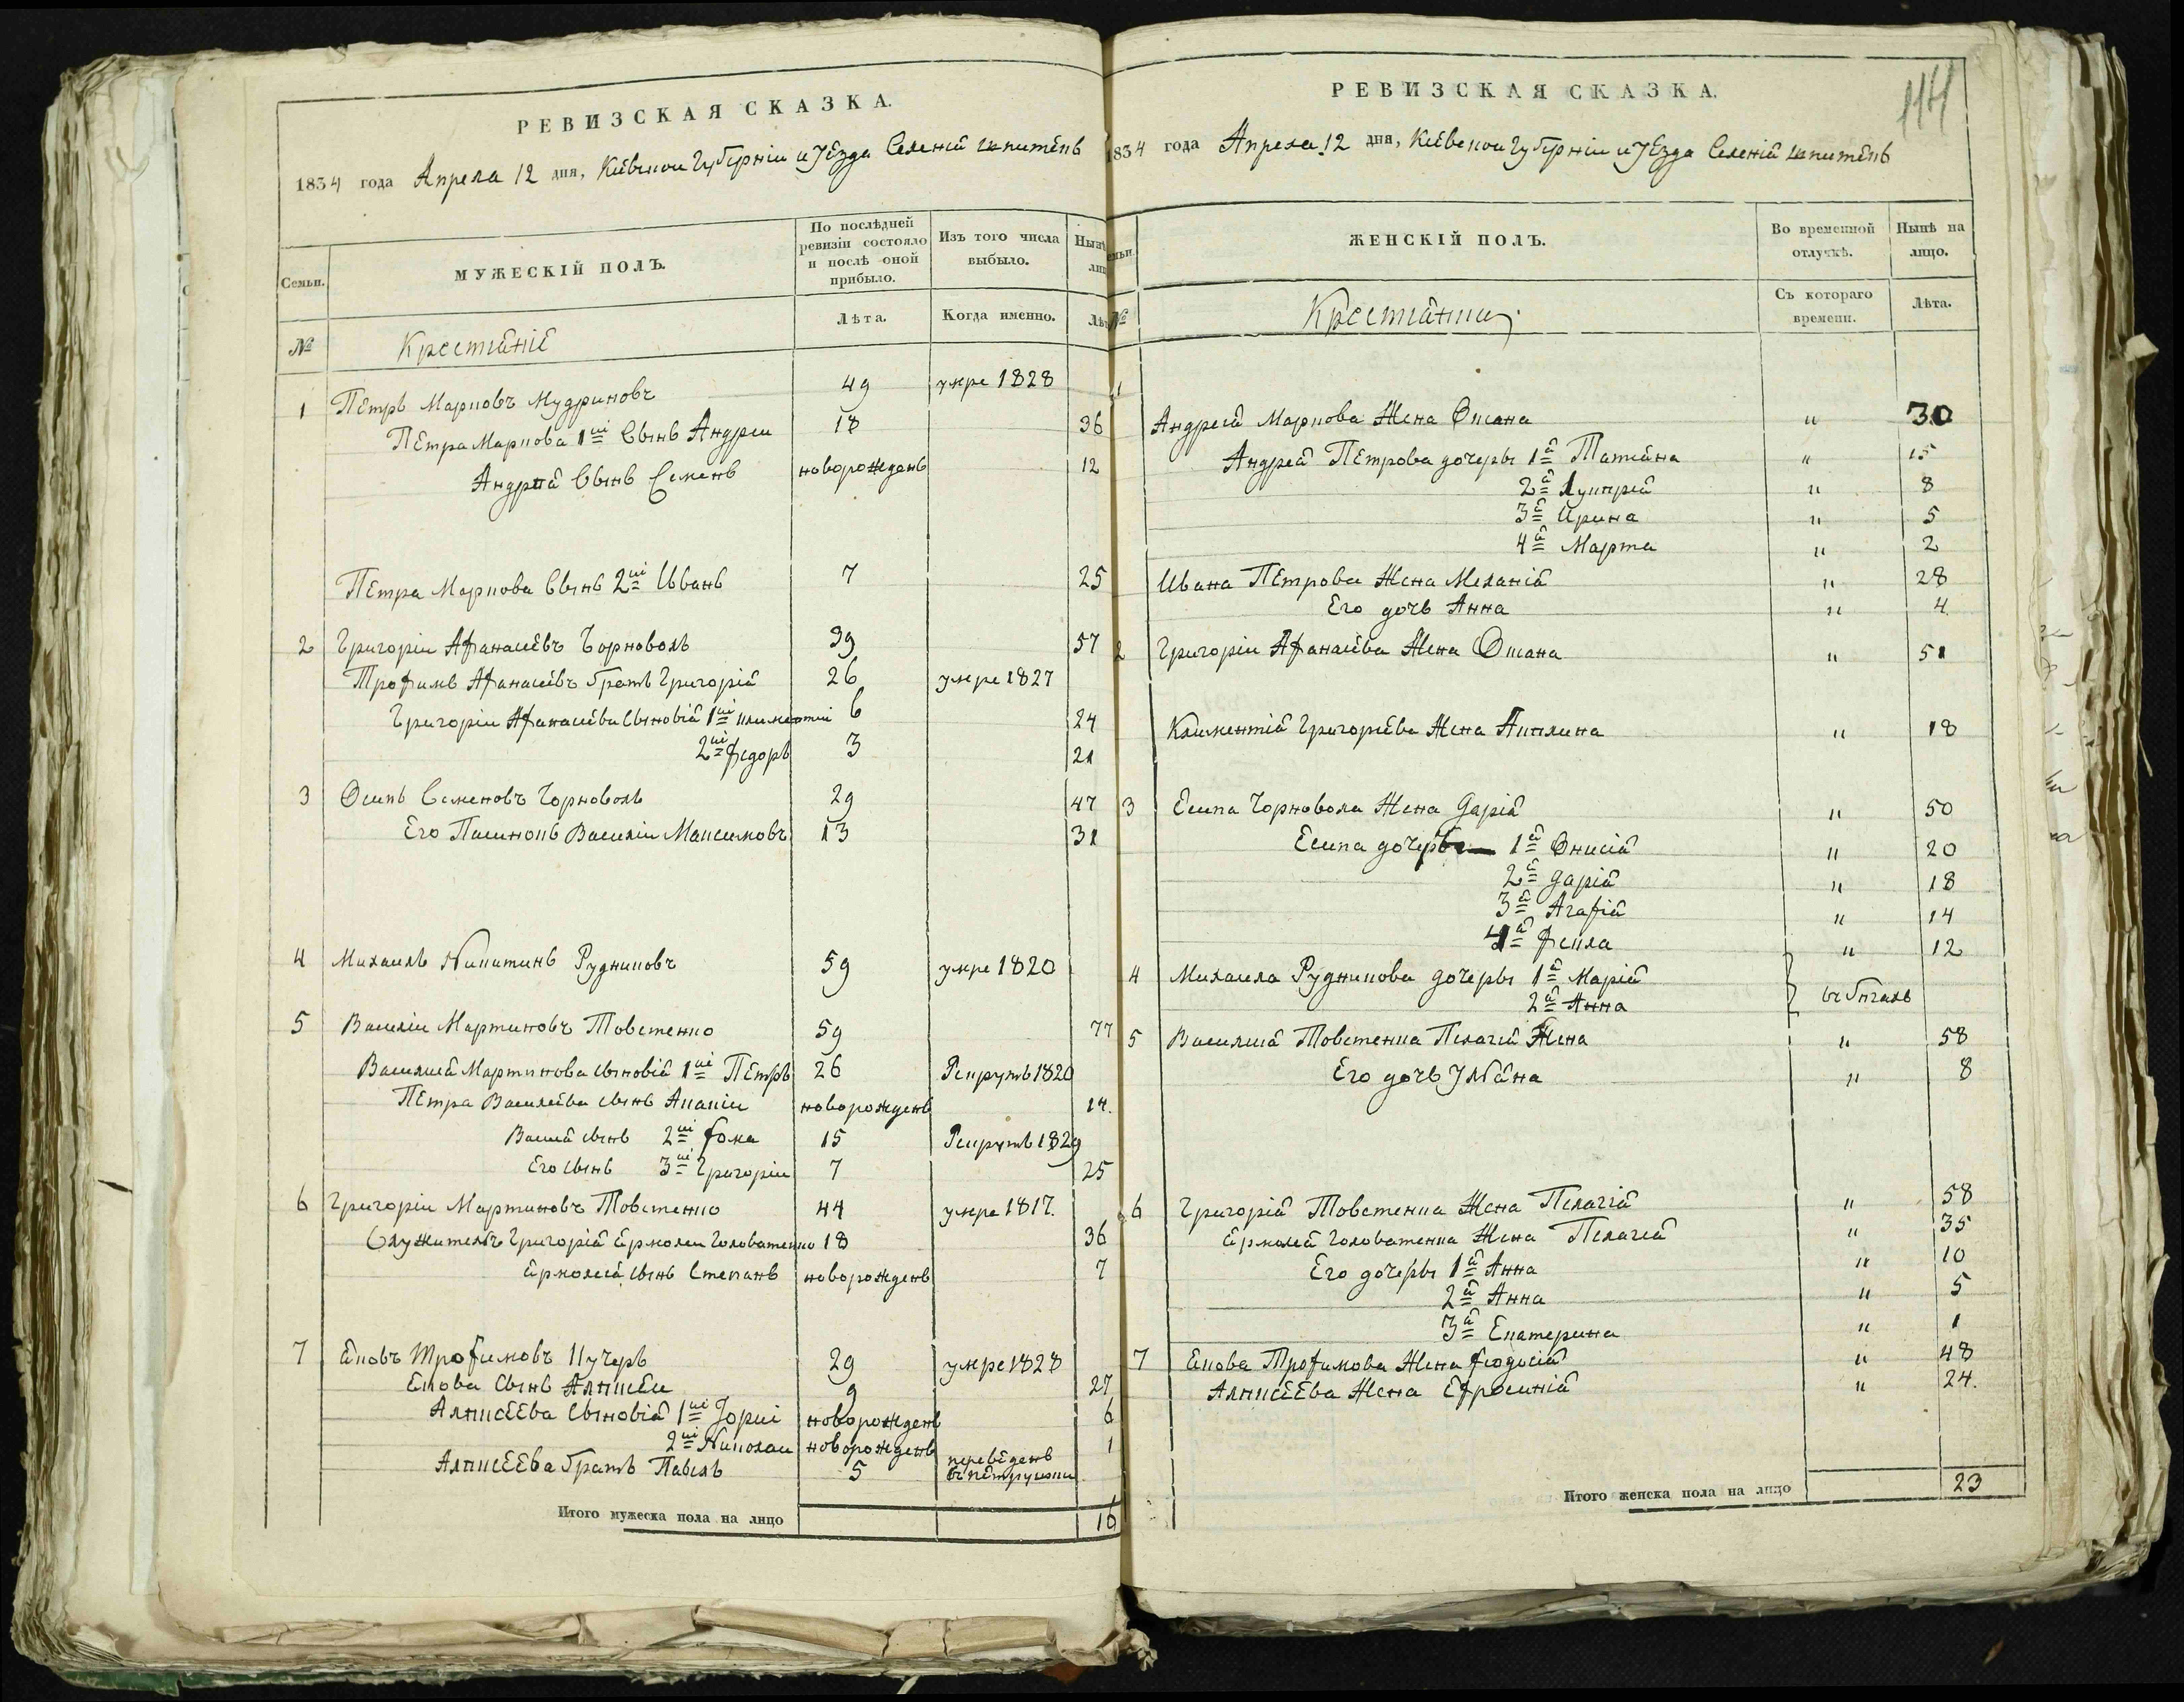 РЕВИЗСКАЯ СКАЗКА.
1834 года Апрела 12 дня, Кіевскои Губерніи и Уезда Селенія
Семьи.
МУЖЕСКІЙ ПОЛЪ.
По послѣдней ревизіи состояло и послѣ оной прибыло.
Изъ того числа выбыло.
Нынѣ
№
Крестіяніе
Лѣта.
Когда именно.
1 Петръ Марковъ Мудриковъ 49 умре 1828
Петра Маркова 1ій Сынъ Андреи 18 36
Андрея Сынъ Семенъ новорожденъ 12
Петра Маркова Сынъ 2ій Иванъ 7 25
2 Григоріи Афанасіевъ Чорноволъ 39 57
Трофимъ Афанасіевъ братъ Григорія 26 умре 1827
Григоріи Афанасіева Сыновія 1ій Климентій 6 24
2ій Федоръ 3 21
3 Осипъ Семеновъ Чорноволъ 29 47
Его Пасинокъ Василіи Максимовъ 13 31
4 Михаилъ Никитинъ Рудниковъ 59 умре 1820
5 Василіи Мартиновъ Товстенко 59 77
Василія Мартинова сыновія 1ій Петръ 26 Рекрутъ 1820
Петра Василіева сынъ Ананіи новорожденъ 14.
Васия сынъ 2ій Фома 15 Рекрутъ 1829
Его сынъ 3ій Григоріи 7 25
6 Григоріи Мартиновъ Товстенко 44 умре 1817.
Служитель Григорія Ермолеи Головатенко 18 36
Ермолея сынъ Степанъ новорожденъ 7
7 Яковъ Трофимовъ Кучеръ 29 умре 1828
Якова Сынъ Алексеи 9 27
Алексеева Сыновія 1ій новорожденъ 6
2ій Николаи новорожденъ 1
Алексеева братъ Павелъ 5 переведенъ в Петрушки
Итого мужеска пола на лицо 16
РЕВИЗСКАЯ СКАЗКА.
114
1834 года Апрела 12 дня, Кіевскои Губерніи и Уезда Селенія
ЖЕНСКІЙ ПОЛЪ.
Во временной отлучкѣ.
Нынѣ на лицо.
№
Крестіянки
Съ котораго времени.
Лѣта.
1
Андрея Маркова Жена Оксана " 30
Андрея Петрова дочеры 1я Татіяна " 15
2я Лукирія " 8
3я Ирина " 5
4я Марта " 2
Ивана Петрова Жена Меланія " 28
Его дочъ Анна " 4
2 Григоріи Афанасіева Жена Оксана " 51
Климентія Григоріева Жена Акилина " 18
3 Есипа Чорновола Жена Дарія " 50
Есипа дочеры 1я Онисія " 20
2я Дарія " 18
3я Агафія " 14
4я Фекла " 12
4 Михаила Рудникова дочеры 1я Марія
2я Анна
5 Василия Товстенка Пелагія Жена " 58
Его дочъ Уліяна " 8
6 Григорія Товстенка Жена Пелагія " 58
Ермолея Головатенка Жена Пелагея " 35
Его дочеры 1я Анна " 10
2я Анна " 5
3я Екатерина " 1
7 Якова Трофимова Жена Феодосія " 48
Алексеева Жена Ефросинія " 24.
Итого женска пола на лицо 23